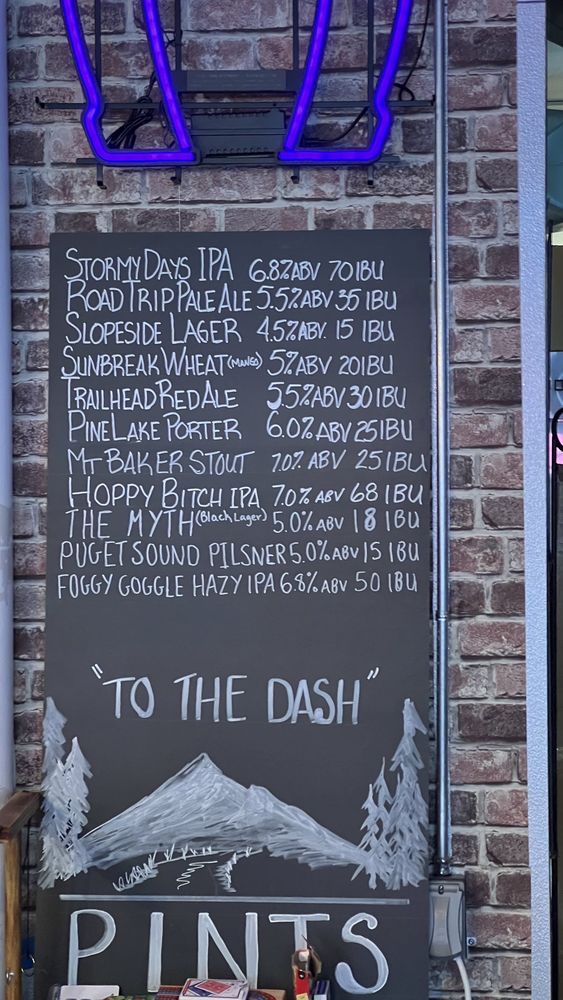 STORMY DAYS IPA 6.8% ABV 70 IBU
ROAD TRIP PALE ALE 5.5% ABV 35 IBU
SLOPESIDE LAGER 4.5% ABV. 15 IBU
SUNBREAK WHEAT (MANGO) 5% ABV 20 IBU
TRAILHEAD RED ALE 5.5% ABV 30 IBU
PINE LAKE PORTER 6.0% ABV 25 IBU
MT BAKER STOUT 7.0% ABV 25 IBU
HOPPY BITCH IPA 7.0% ABV 68 IBU
THE MYTH (Black Lager) 5.0% ABV 18 IBU
PUGET SOUND PILSNER 5.0% ABV 15 IBU
FOGGY GOGGLE HAZY IPA 6.8% ABV 50 IBU
"TO THE DASH"
PINTS